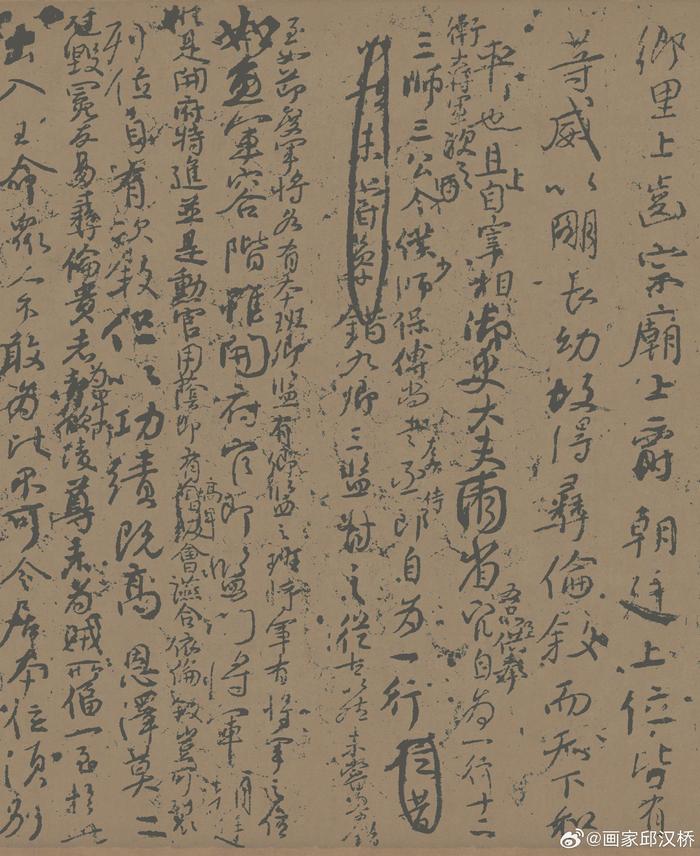 鄉里上齒宗廟上爵朝廷上位皆有
等威以明長幼故得彝倫敘而天下和
平也且上自宰相御史大夫兩省五品以上供奉官自為一行十二
衛大將軍次之
三師三公令僕少師保傅尚書左右丞侍郎自為一行
未嘗參錯九卿三監對之從古以然未嘗參錯
至如節度軍將各有本班卿監有卿監之班將軍有將軍之位
如魚軍容階雖開府官即監門將軍朝廷
縱是開府特進並是勳官用蔭即有高卑會讌合依倫敘豈可裂
列位自有次敘但以功績既高恩澤莫二
冠毀冕反易彝倫貴者為卑所凌尊者為賊所偪一至於此
出入王命眾人不敢為比不可令居本位須別
@画家邱汉桥